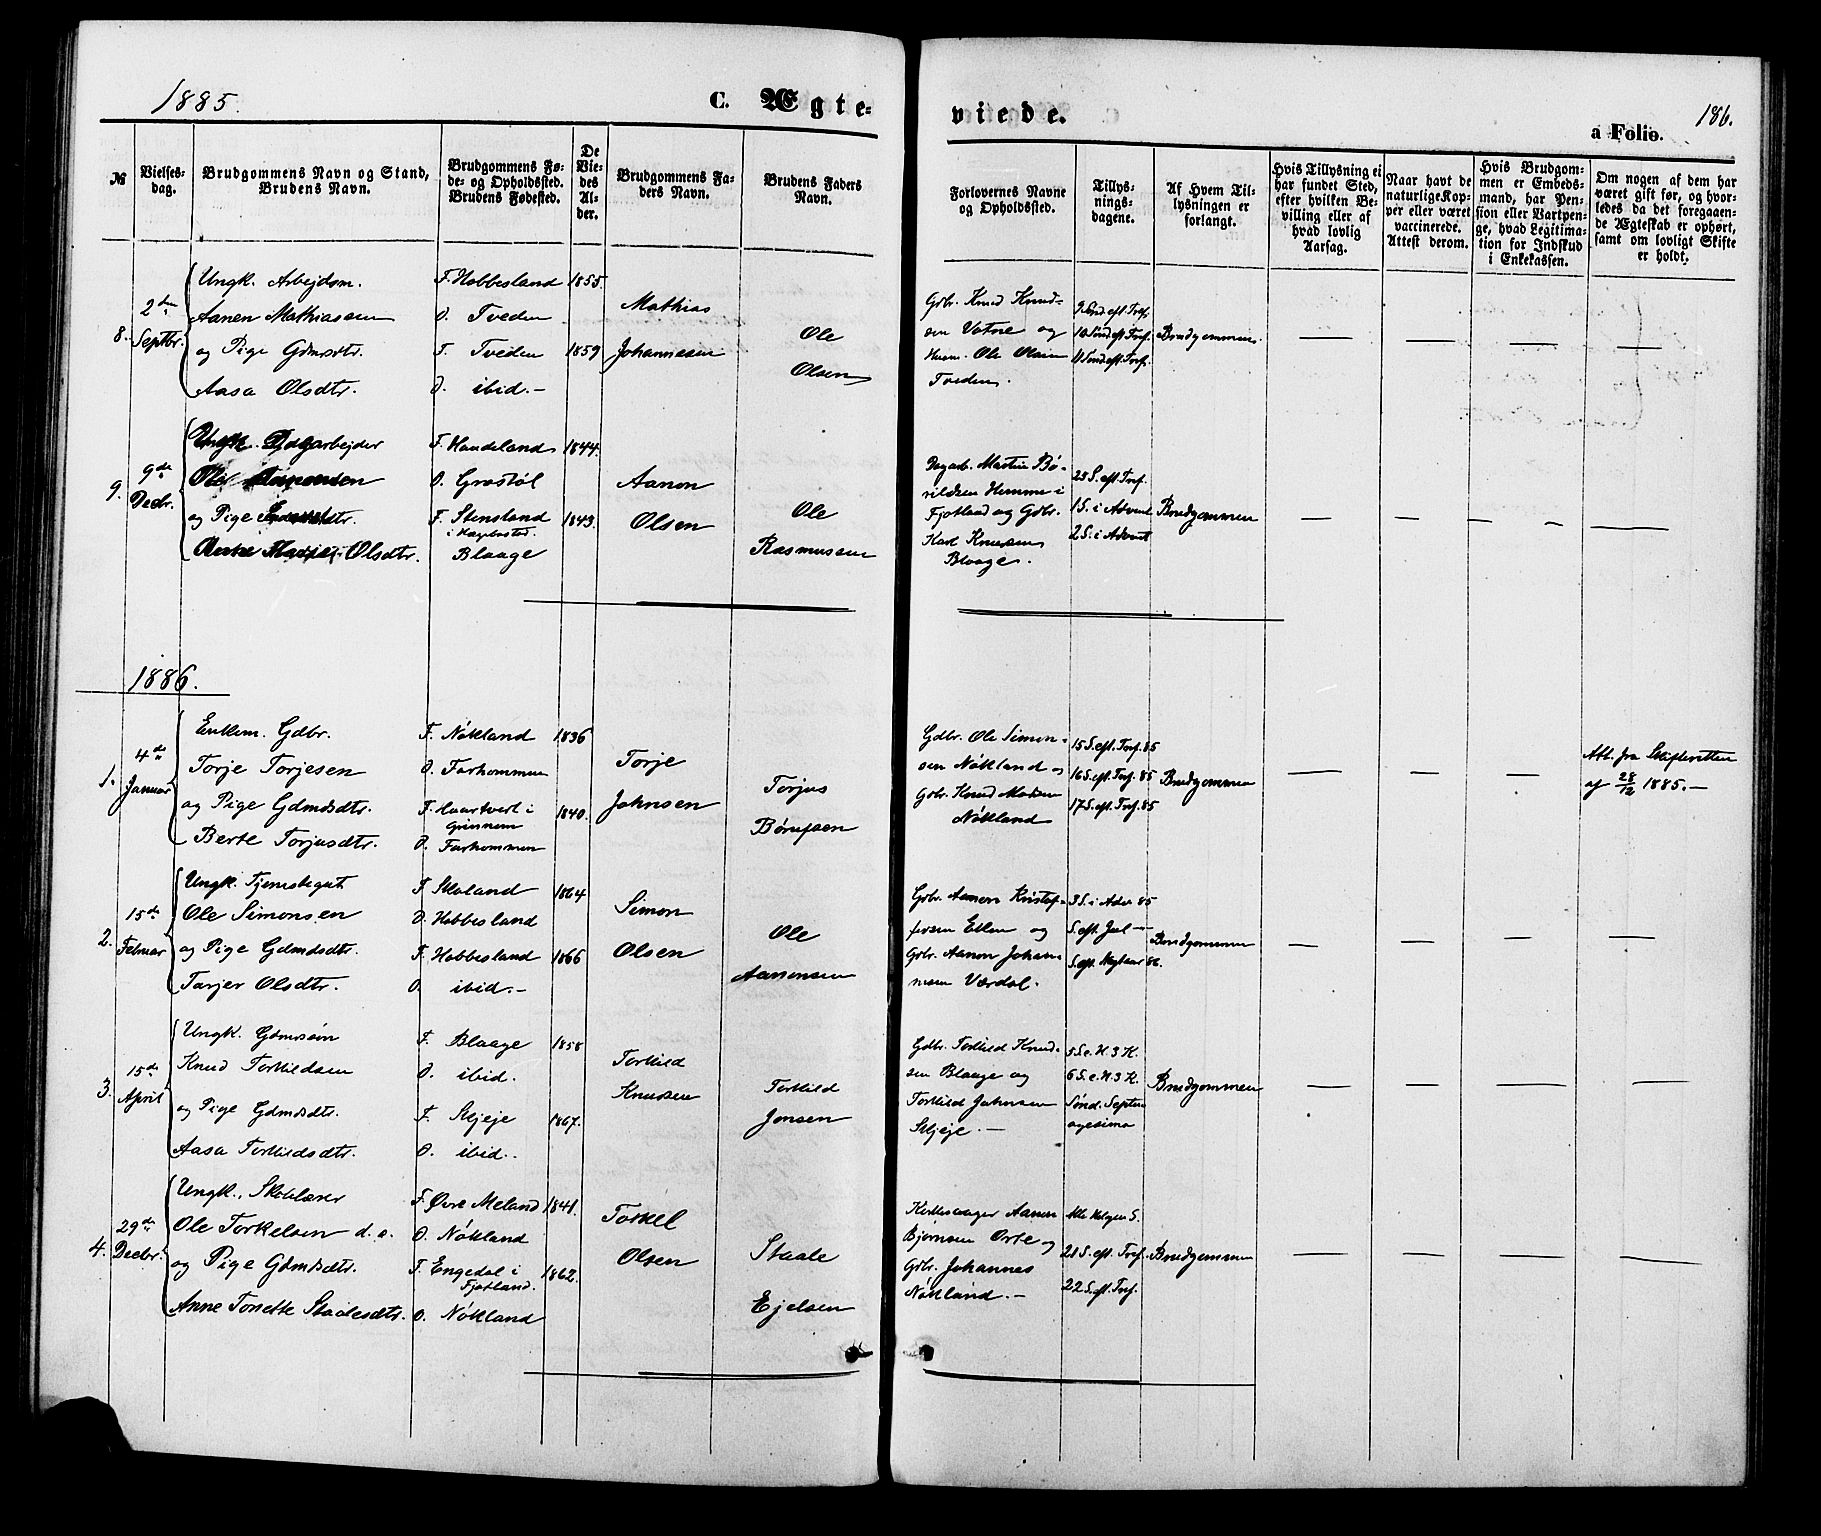 1885.
C. Ægte-
viede.
186.
a Folio.
№
Vielses-
dag.
Brudgommens Navn og Stand,
Brudens Navn.
Brudgommens Fø-
de- og Opholdssted.
Brudens Fødested.
De
Vie-
des
Al-
der.
Brudgommens Fa-
ders Navn.
Brudens Faders
Navn.
Forlovernes Navne
og Opholdssted.
Tillys-
nings-
dagene.
Af Hvem Til-
lysningen er
forlangt.
Hvis Tillysning ei
har fundet Sted,
efter hvilken Be-
villing eller af
hvad lovlig
Aarsag.
Naar havt de
naturlige Kop-
per eller været
vaccinerede.
Attest derom.
Hvis Brudgom-
men er Embeds-
mand, har Pen-
sion eller Vartpen-
ge, hvad Legitima-
tion for Indskud
i Enkekassen.
Om nogen af dem har
været gift før, og hvor-
ledes da det foregaaen-
de Ægteskab er ophørt,
samt om lovligt Skifte
er holdt.
8.
2den
Septbr.
Ungk. Arbejdsm.
Aanen Mathiassen
og Pige Gdmsdtr.
Aasa Olsdtr.
F. Hobbesland
O. Tveden
F. Tveden
O. ibid.-
1855.
1859
Mathias
Johannesen
Ole
Olsen
Gdbr. Knud Knud-
sen Votne og
Husm. Ole Olsen
Tveden.
9 Sønd. eft. Tref.
10 Sønd. eft. Tref.
11 Sønd. eft. Tref.
Brudgommen.
9.
9de
Decbr.
Ungk. Dagarbejder
Ole Aanonsen
og Pige
Olsdtr.
F. Haudeland
O. Grostøl
F. Stensland
i Hægebostad.
Blaage
1844.
1843.
Aanon
Olsen
Ole
Rasmussen
Dagarb. Martin Bø-
rildsen Homme i
Fjotland og Gdbr.
Karl Knudsen
Blaage.
25 S. eft. Tref.
1 S. i Advent
2 S. i Advent
Brudgommen
1886.
1.
4de
Januar
Enkem. Gdbr.
Torje Torjesen
og Pige Gdmdsdtr.
Berte Torjusdtr.
F. Nökland
O. Farhommen
F. Haartveit i
Grinnem
O. Farhommen
1836
1840.
Torje
Johnsen
Torjus
Børufsen
Gdbr. Ole Simon-
sen Nökland og
Gdbr. Knud
Nökland
15 S. eft. Tref. 85
16 S. eft. Tref. 85
17 S. eft. Tref. 85
Brudgommen
Att. fra Skifteretten
af 28/12 1885.-
2.
15de
Februar
Ungk. Tjenestegut
Ole Simonsen
og Pige Gdmdsdtr.
Tarjer Olsdtr.
F. Skoland
O. Hobbesland
F. Hobbesland
O. ibid.-
1864
1866
Simon
Olsen
Ole
Aanonsen
Gdbr. Aanen Kristof-
fersen Ellen og
Gdbr. Aanon Johan-
nesen Værdal.
3 S. i Adv. 85
S. eft. Jul -
S. eft. Nytaar 86.
Brudgommen
3.
15de
April
Ungk. Gdmdssøn
Knud Torkildsen
og Pige Gdmdsdtr.
Aasa Torkildsdtr.
F. Blaage
O. ibid.
F. Skjeje
O. ibid.
1858
1867.
Torkild
Knudsen
Torkild
Jonsen
Gdbr. Torkild Knud-
sen Blaage og
Torkild Johnsen
Skjeje. -
5 S. e. H. 3 K.
6 S. e. H. 3 K.
Sønd. Septu-
agesima
Brudgommen
4.
29de
Decbr.
Ungk., Skolelærer
Ole Torkelsen d. o.
og Pige Gdmdsdtr.
Anne Tonette Staalesdtr.
F. Øvre Meland
O. Nökland
F. Engedal i
Fjotland.
O. Nökland
1841.
1862.
Torkel
Olsen
Staale
Ejelsen
Kirkesanger Aanen
Bjørnsen Orte og
Gdbr. Johannes
Nökland. -
Alle Helgen S.
21 S. eft. Tref.
22 S. eft. Tref.
Brudgommen